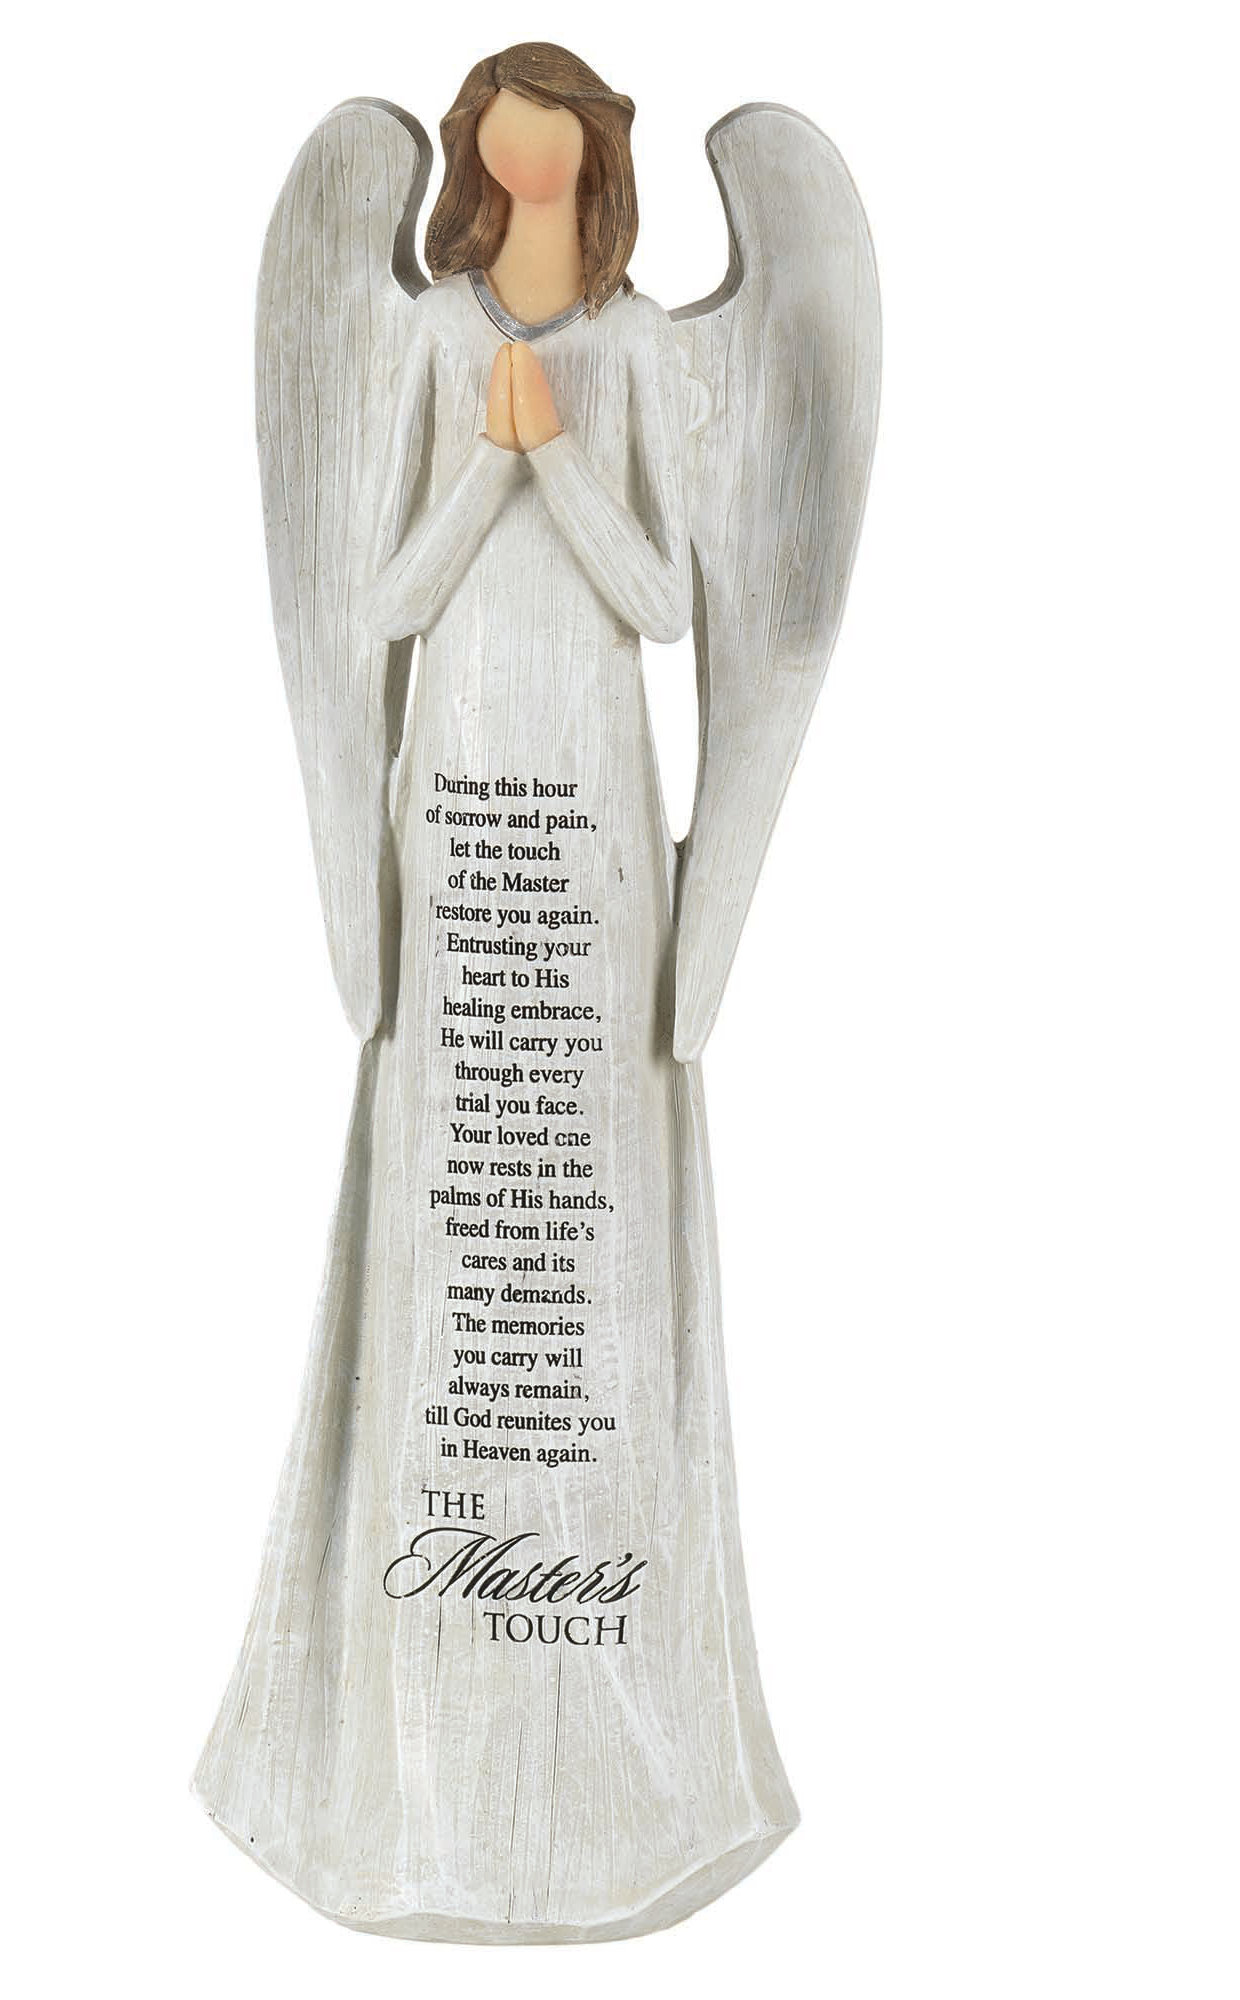 During this hour
of sorrow and pain,
let the touch
of the Master
restore you again.
Entrusting your
heart to His
healing embrace,
He will carry you
through every
trial you face.
Your loved one
now rests in the
palms of His hands,
freed from life's
cares and its
many demands.
The memories
you carry will
always remain,
till God reunites you
in Heaven again.
THE
Master's
TOUCH